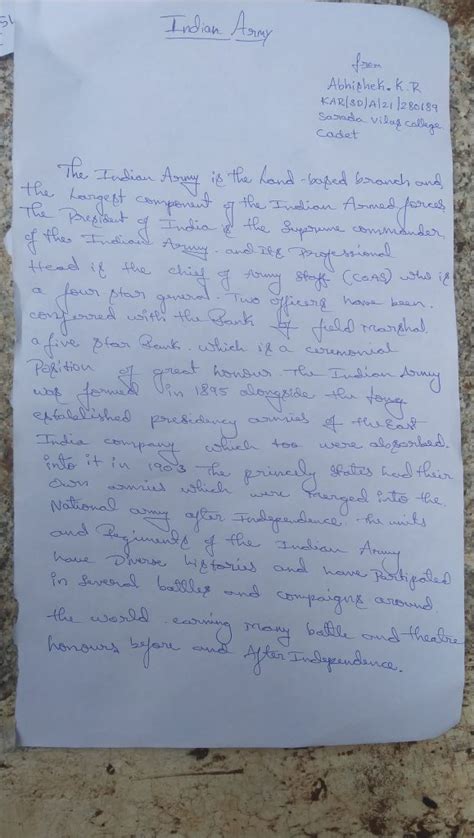 Indian Army
from
Abhishek. K. R
KAR/SD/A/21/280189
Sarada Vilas College
Cadet
The Indian Army is the Land-based branch and
the Largest component of the Indian Armed forces
The President of India is the Supreme commander
of the Indian Army. and its Professional
Head is the chief of Army Staff (COAS) who is
a four star general. Two officers have been
conferred with the Rank of field marshal
a five star Rank. which is a ceremonial
Position of great honour. The Indian Army
was formed in 1895 alongside the long
established presidency armies of the East
India company which too were absorbed
into it in 1903 The princely states had their
own armies which were merged into the
National army after Independence. The units
and Regiments of the Indian Army
have Diverse histories and have Partipated
in several battles and compaigns around
the world. earning many battle and theatre
honours before and After Independence.